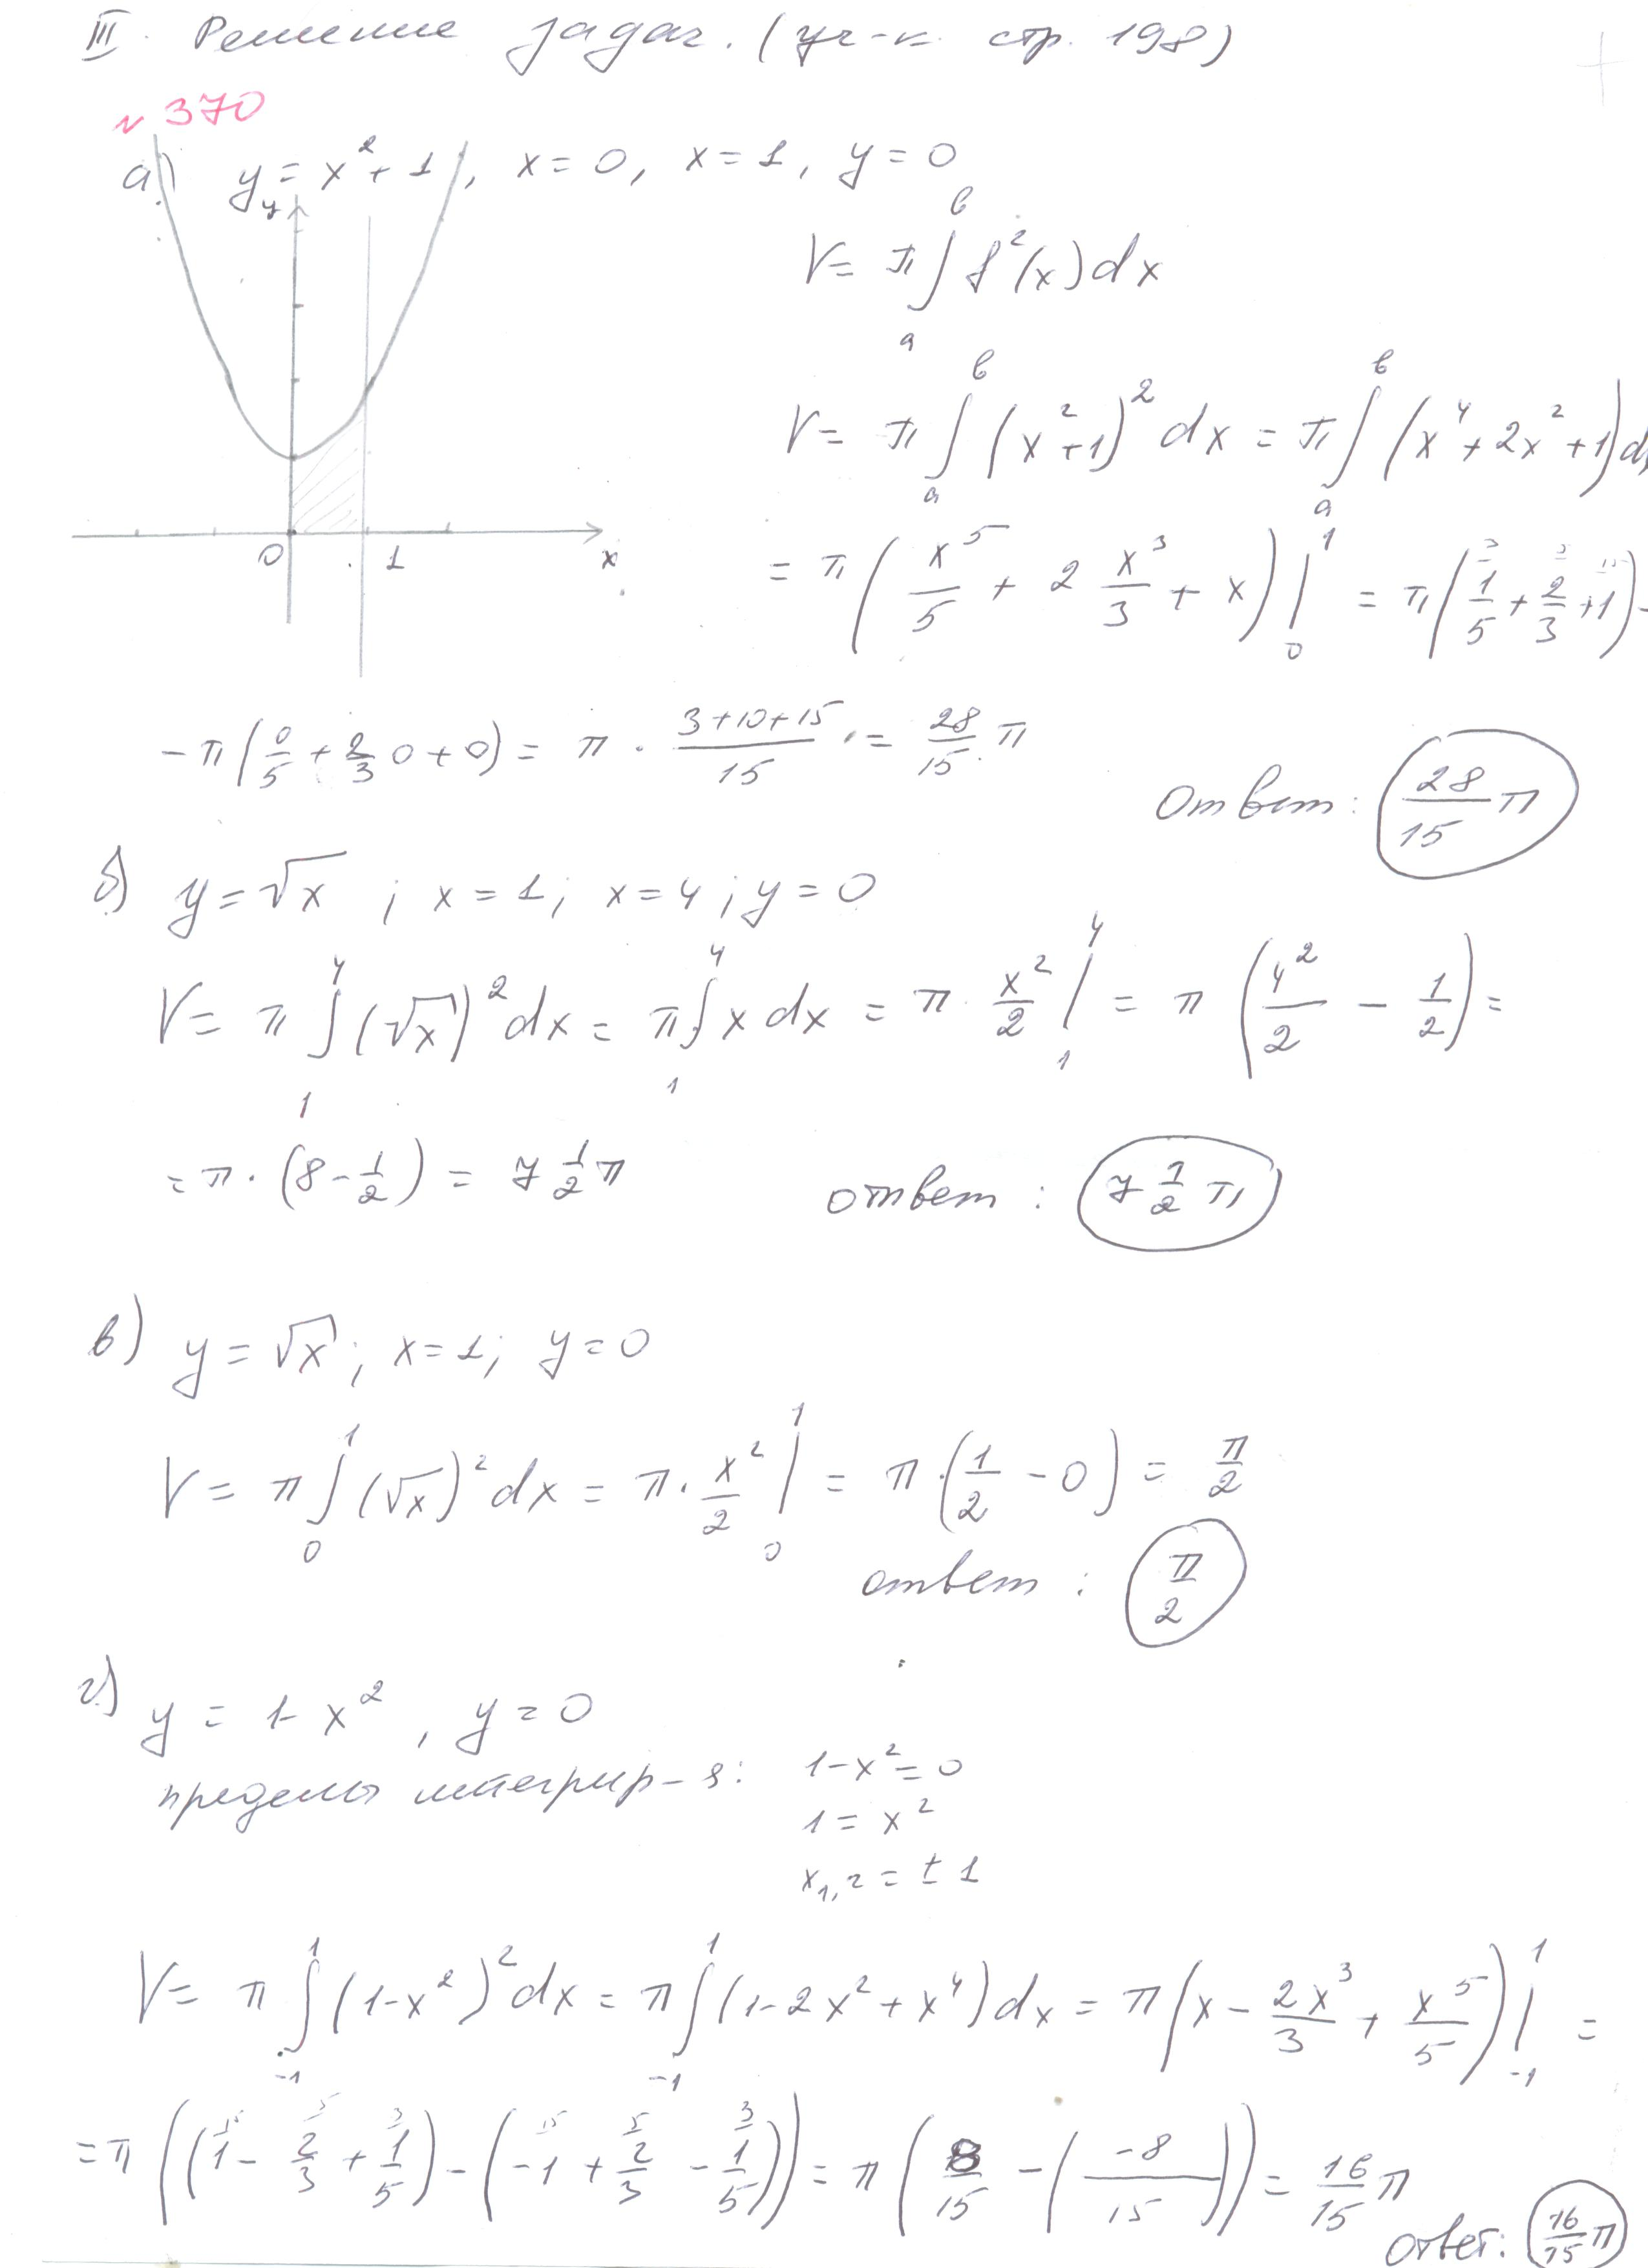 III. Решение задач. (уч-к. стр. 198)
№ 370
а) y = x² + 1, x = 0, x = 1, y = 0
y
0 1 x
V = π∫ₐᵇ f²(x)dx
V = π∫ₐᵇ (x²+1)² dx = π∫ₐᵇ (x⁴ + 2x² + 1)d
= π(x⁵/5 + 2 x³/3 + x)|₀¹ = π(1/5 + 2/3 + 1) -
- π(0/5 + 2/3 0 + 0) = π · (3+10+15)/15 = 28/15 π
ответ: 28/15 π
б) y = √x ; x = 1; x = 4; y = 0
V = π∫₁⁴ (√x)² dx = π∫₁⁴ x dx = π · x²/2 |₁⁴ = π (4²/2 - 1/2) =
= π · (8 - 1/2) = 7 1/2 π
ответ: 7 1/2 π
в) y = √x; x = 1; y = 0
V = π∫₀¹ (√x)² dx = π · x²/2 |₀¹ = π · (1/2 - 0) = π/2
ответ: π/2
г) y = 1 - x², y = 0
пределы интегрир-я: 1 - x² = 0
1 = x²
x₁,₂ = ± 1
V = π∫₋₁¹ (1-x²)² dx = π∫₋₁¹ (1 - 2x² + x⁴) dx = π(x - 2x³/3 + x⁵/5)|₋₁¹ =
= π((1 - 2/3 + 1/5) - (-1 + 2/3 - 1/5)) = π(8/15 - (-8/15)) = 16/15 π
ответ: 16/15 π